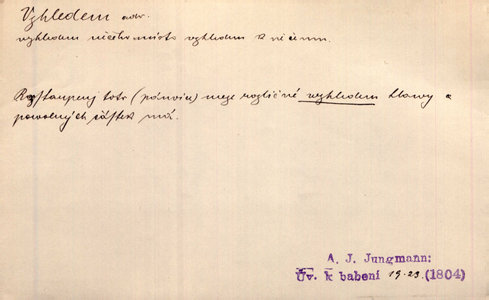 Vzhledem adv.
vzhledem něčeho místo vzhledem k něčemu.
Rozstaupený toto (pánvice) meze rozličné vzhledem hlawy a
powolných částek má.
A. J. Jungmann:
Úv. k babení 19.23.(1804)